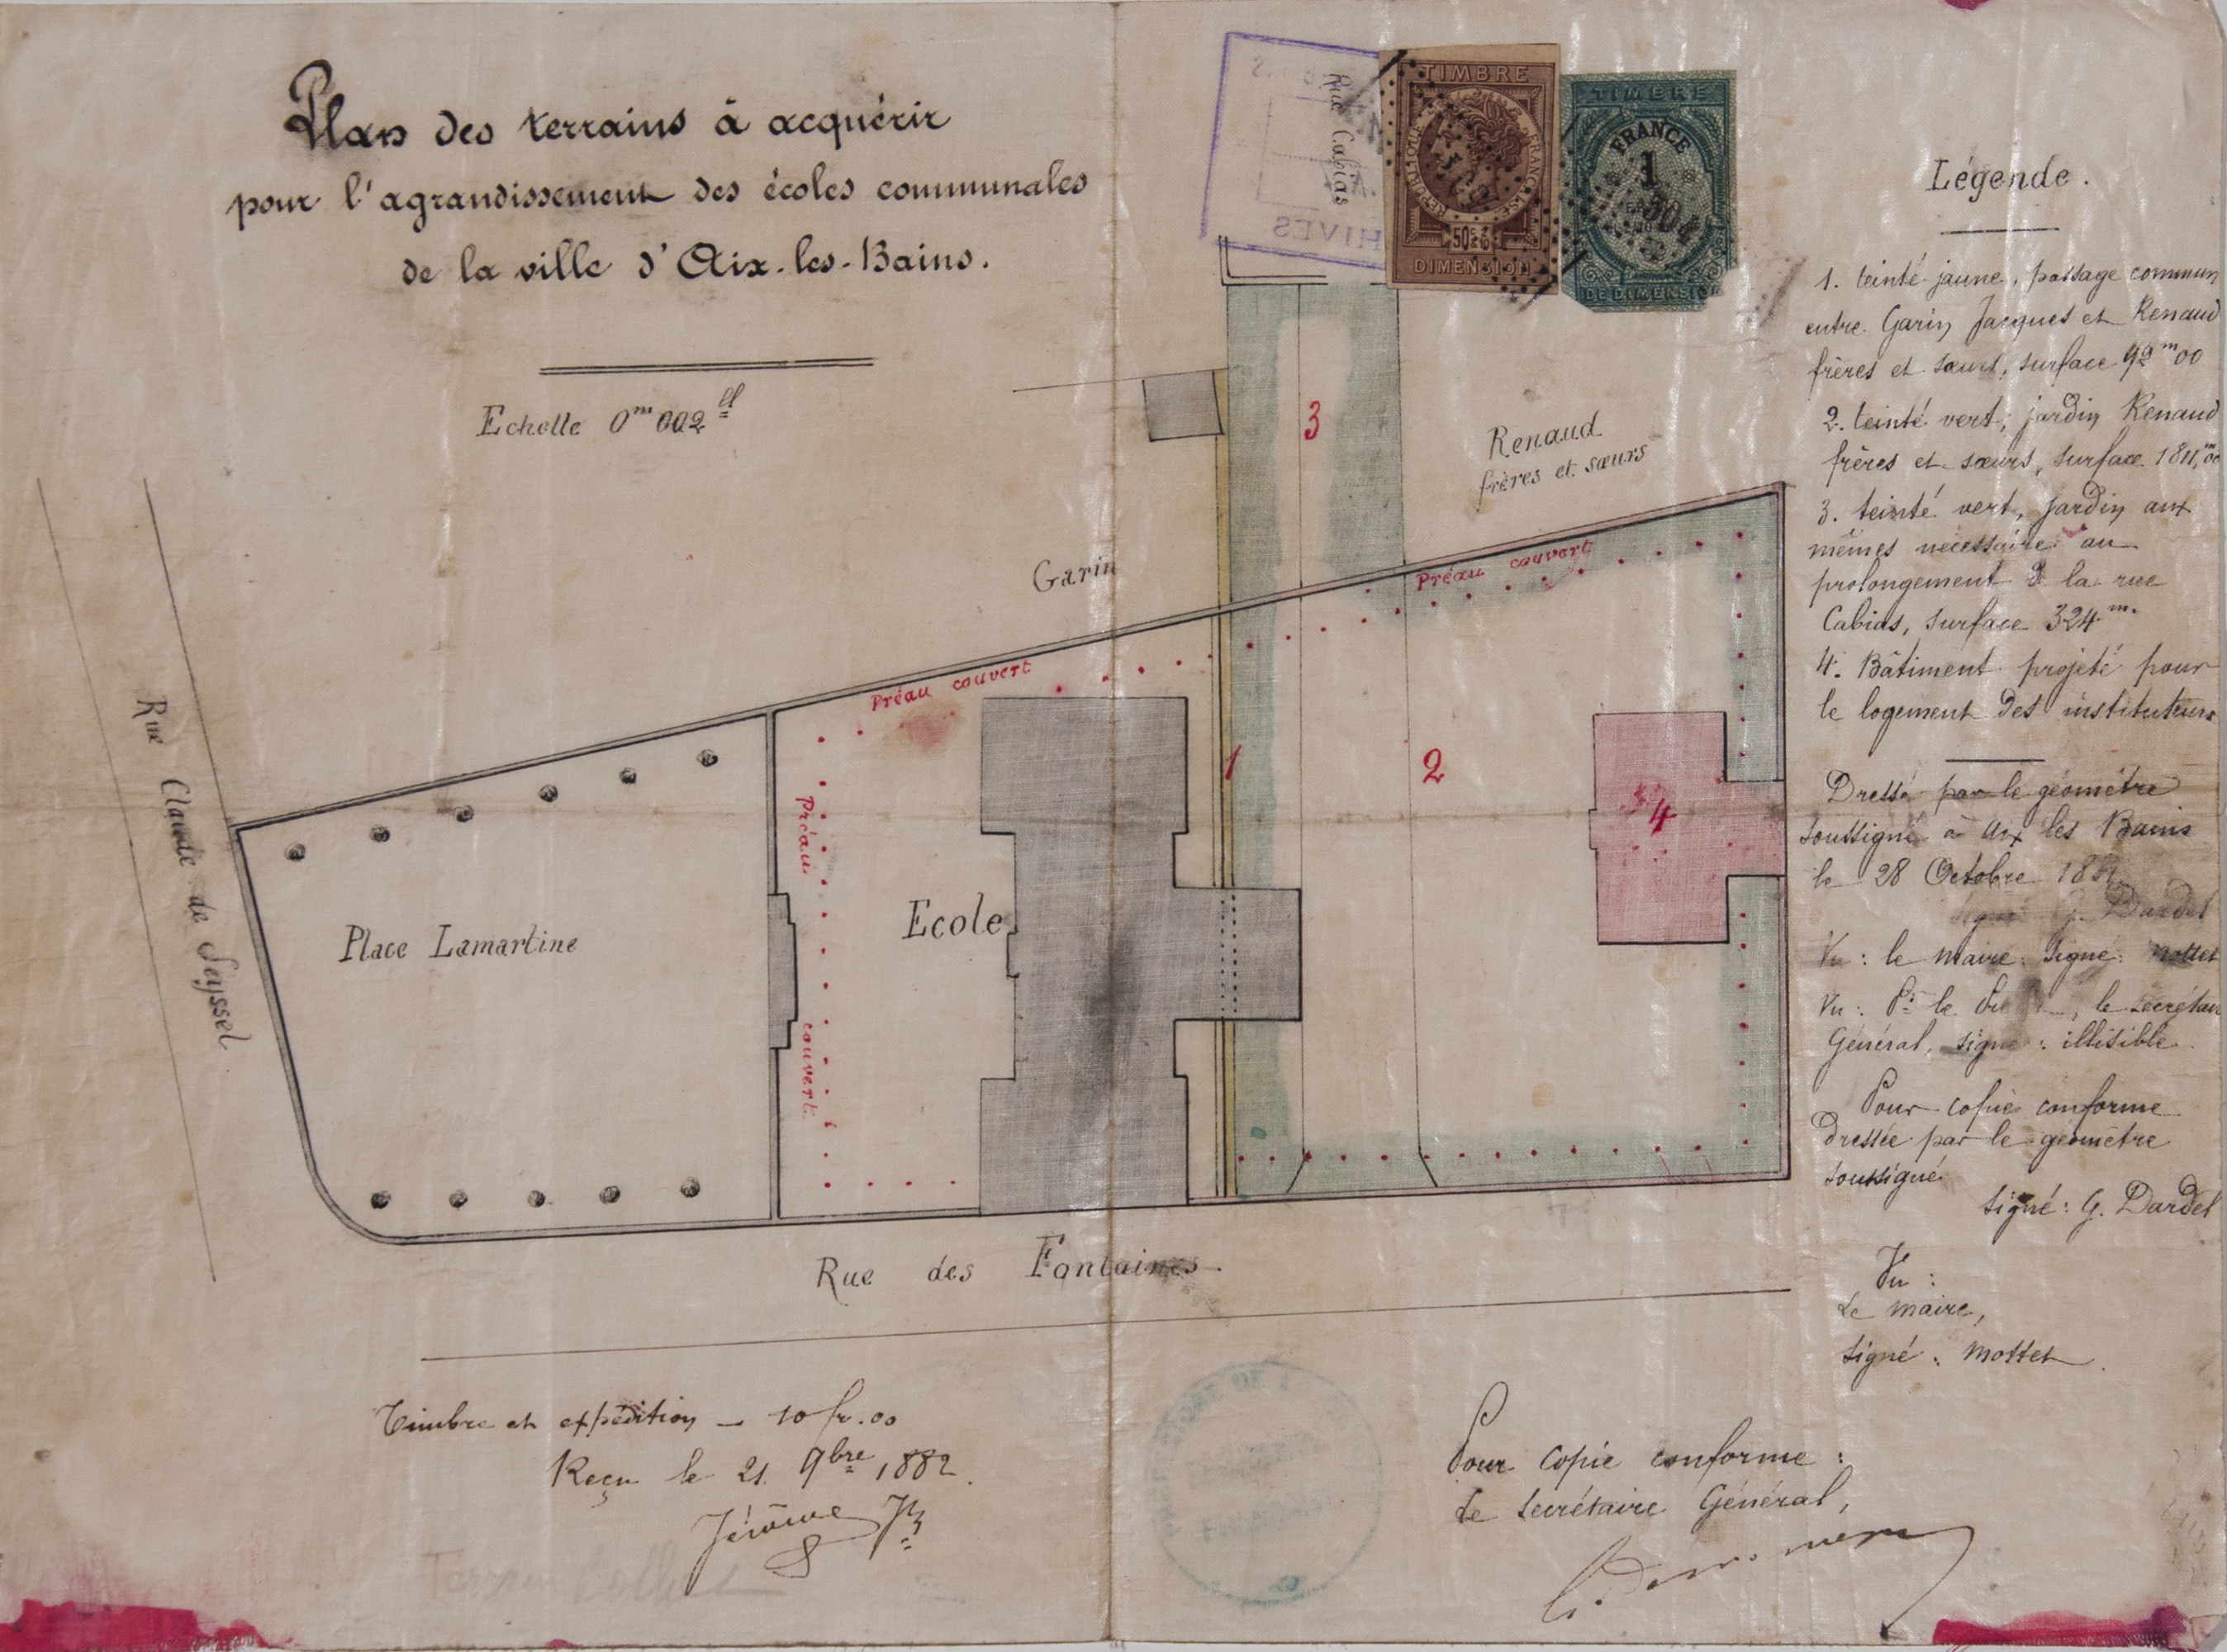 Plan des terrains à acquérir
pour l'agrandissement des écoles communales
de la ville d'Aix-les-Bains.
Echelle 0m 002
Rue Cabias
TIMBRE
RÉPUBLIQUE FRANÇAISE
50c
DIMENSION
TIMBRE
FRANCE
1
DE DIMENSION
3
Renaud
frères et sœurs
Garin
Préau couvert
Préau couvert
Préau
couvert
1
2
4
Ecole
Place Lamartine
Rue Claude de Seyssel
Rue des Fontaines.
Légende.
1. teinté jaune, passage commun
entre Garin Jacques et Renaud
frères et sœurs, surface 92m00
2. teinté vert, jardin Renaud
frères et sœurs, surface 1811,m00
3. teinté vert, jardin aux
mêmes necessaire au
prolongement de la rue
Cabias, surface 324m.
4. Bâtiment projeté pour
le logement des instituteurs
Dressé par le géomètre
soussigné à Aix les Bains
le 28 Octobre
signé G. Dardel
Vu : le maire. Signé: Mottet
Vu : Pr le, le secrétaire
Général, signé : illisible.
Pour copie conforme
dressée par le géomètre
soussigné
signé: G. Dardel
Vu :
Le maire,
signé : Mottet.
Timbre et expédition — 10 fr. 00
Reçu le 21 9bre 1882.
Jérôme
Pour copie conforme :
Le secrétaire Général,